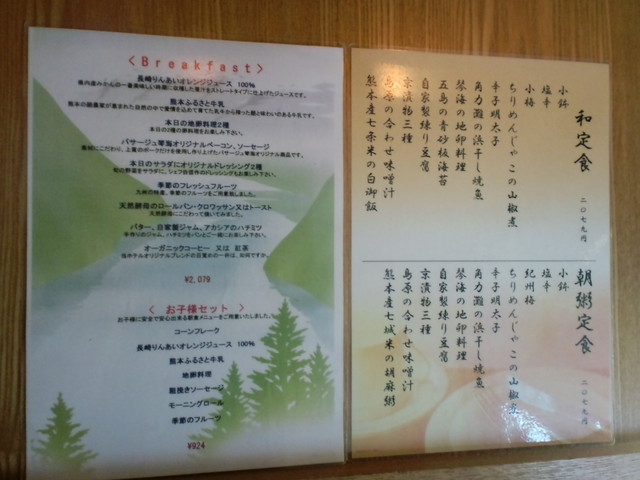 ＜Breakfast＞
長崎りんあいオレンジジュース 100%
熊本ふるさと牛乳
本日の地卵料理2種
本日の2種の卵料理をお楽しみ下さい。
パサージュ琴海オリジナルベーコン、ソーセージ
本日のサラダにオリジナルドレッシング2種
季節のフレッシュフルーツ
天然酵母のロールパン・クロワッサン又はトースト
天然酵母にこだわって焼いてみました。
バター、自家製ジャム、アカシアのハチミツ
オーガニックコーヒー 又は 紅茶
¥2,079
＜ お子様セット ＞
お子様に安全で安心出来る朝食メニューをご用意いたしました。
コーンフレーク
長崎りんあいオレンジジュース 100%
熊本ふるさと牛乳
地卵料理
粗挽きソーセージ
モーニングロール
季節のフルーツ
¥924
和定食 二〇七九円
小鉢
塩辛
小梅
ちりめんじゃこの山椒煮
辛子明太子
角力灘の浜干し焼魚
琴海の地卵料理
五島の青砂板海苔
自家製練り豆腐
京漬物三種
島原の合わせ味噌汁
熊本産七条米の白御飯
朝粥定食 二〇七九円
小鉢
塩辛
紀州梅
ちりめんじゃこの山椒煮
辛子明太子
角力灘の浜干し焼魚
琴海の地卵料理
自家製練り豆腐
京漬物三種
島原の合わせ味噌汁
熊本産七城米の胡麻粥